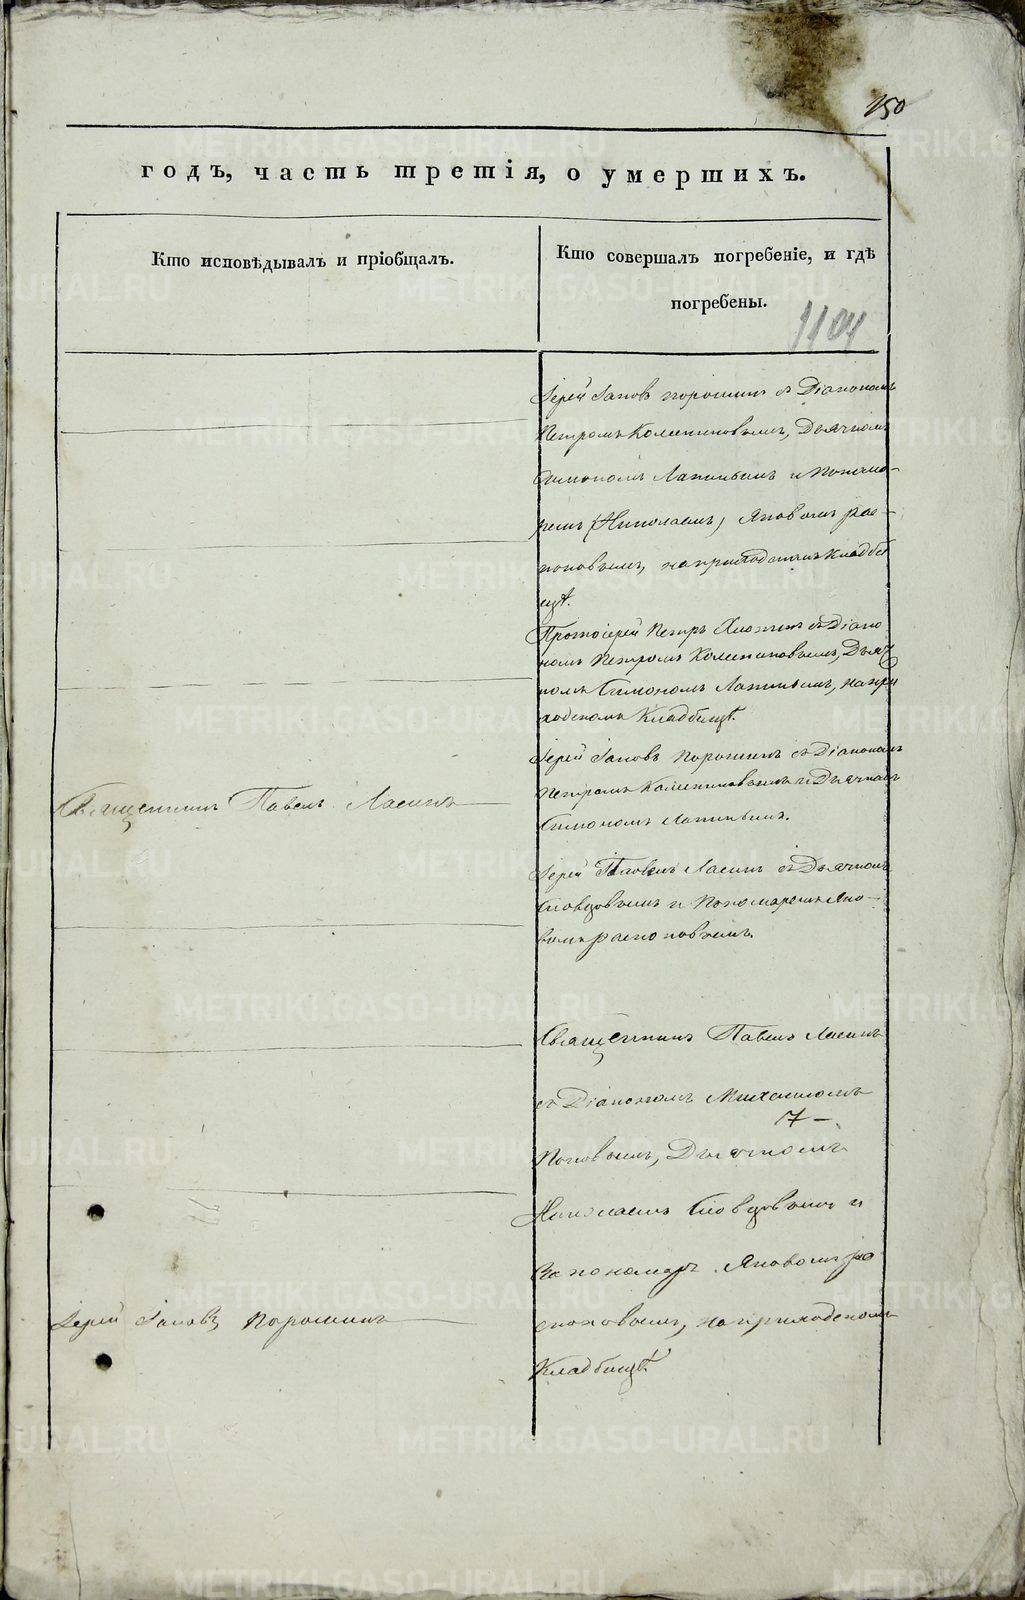 150
годъ, часть третія, о умершихъ.
Кто исповѣдывалъ и пріобщалъ.
Кто совершалъ погребеніе, и гдѣ
погребены.
1104
Іерей Іаковъ Порошинъ съ Діакономъ
Петромъ Дьячкомъ
Симономъ Лапинымъ и Понома-
ремъ (Николаемъ) Яковомъ рас-
поповымъ, на приходскомъ кладби
щѣ.
Протоіерей Петръ съ Діако
номъ Петромъ Дьяч
комъ Симономъ Лапинымъ, на при
ходскомъ кладбищѣ.
Іерей Іаковъ Порошинъ съ Діакономъ
Петромъ и Дьячкомъ
Симономъ Лапинымъ.
Священникъ Павелъ Ласинъ
Іерей Павелъ Ласинъ съ Дьячкомъ
Словцовымъ и Пономаремъ Яко-
вомъ распоповымъ.
Священникъ Павелъ Ласинъ
съ Діакономъ Михаиломъ
Поповымъ, Дьячкомъ
Николаемъ Словцовымъ и
пономаря Яковомъ ра
споповымъ, на приходскомъ
Кладбищѣ.
Іерей Іаковъ Порошинъ
METRIKI.GASO-URAL.RU